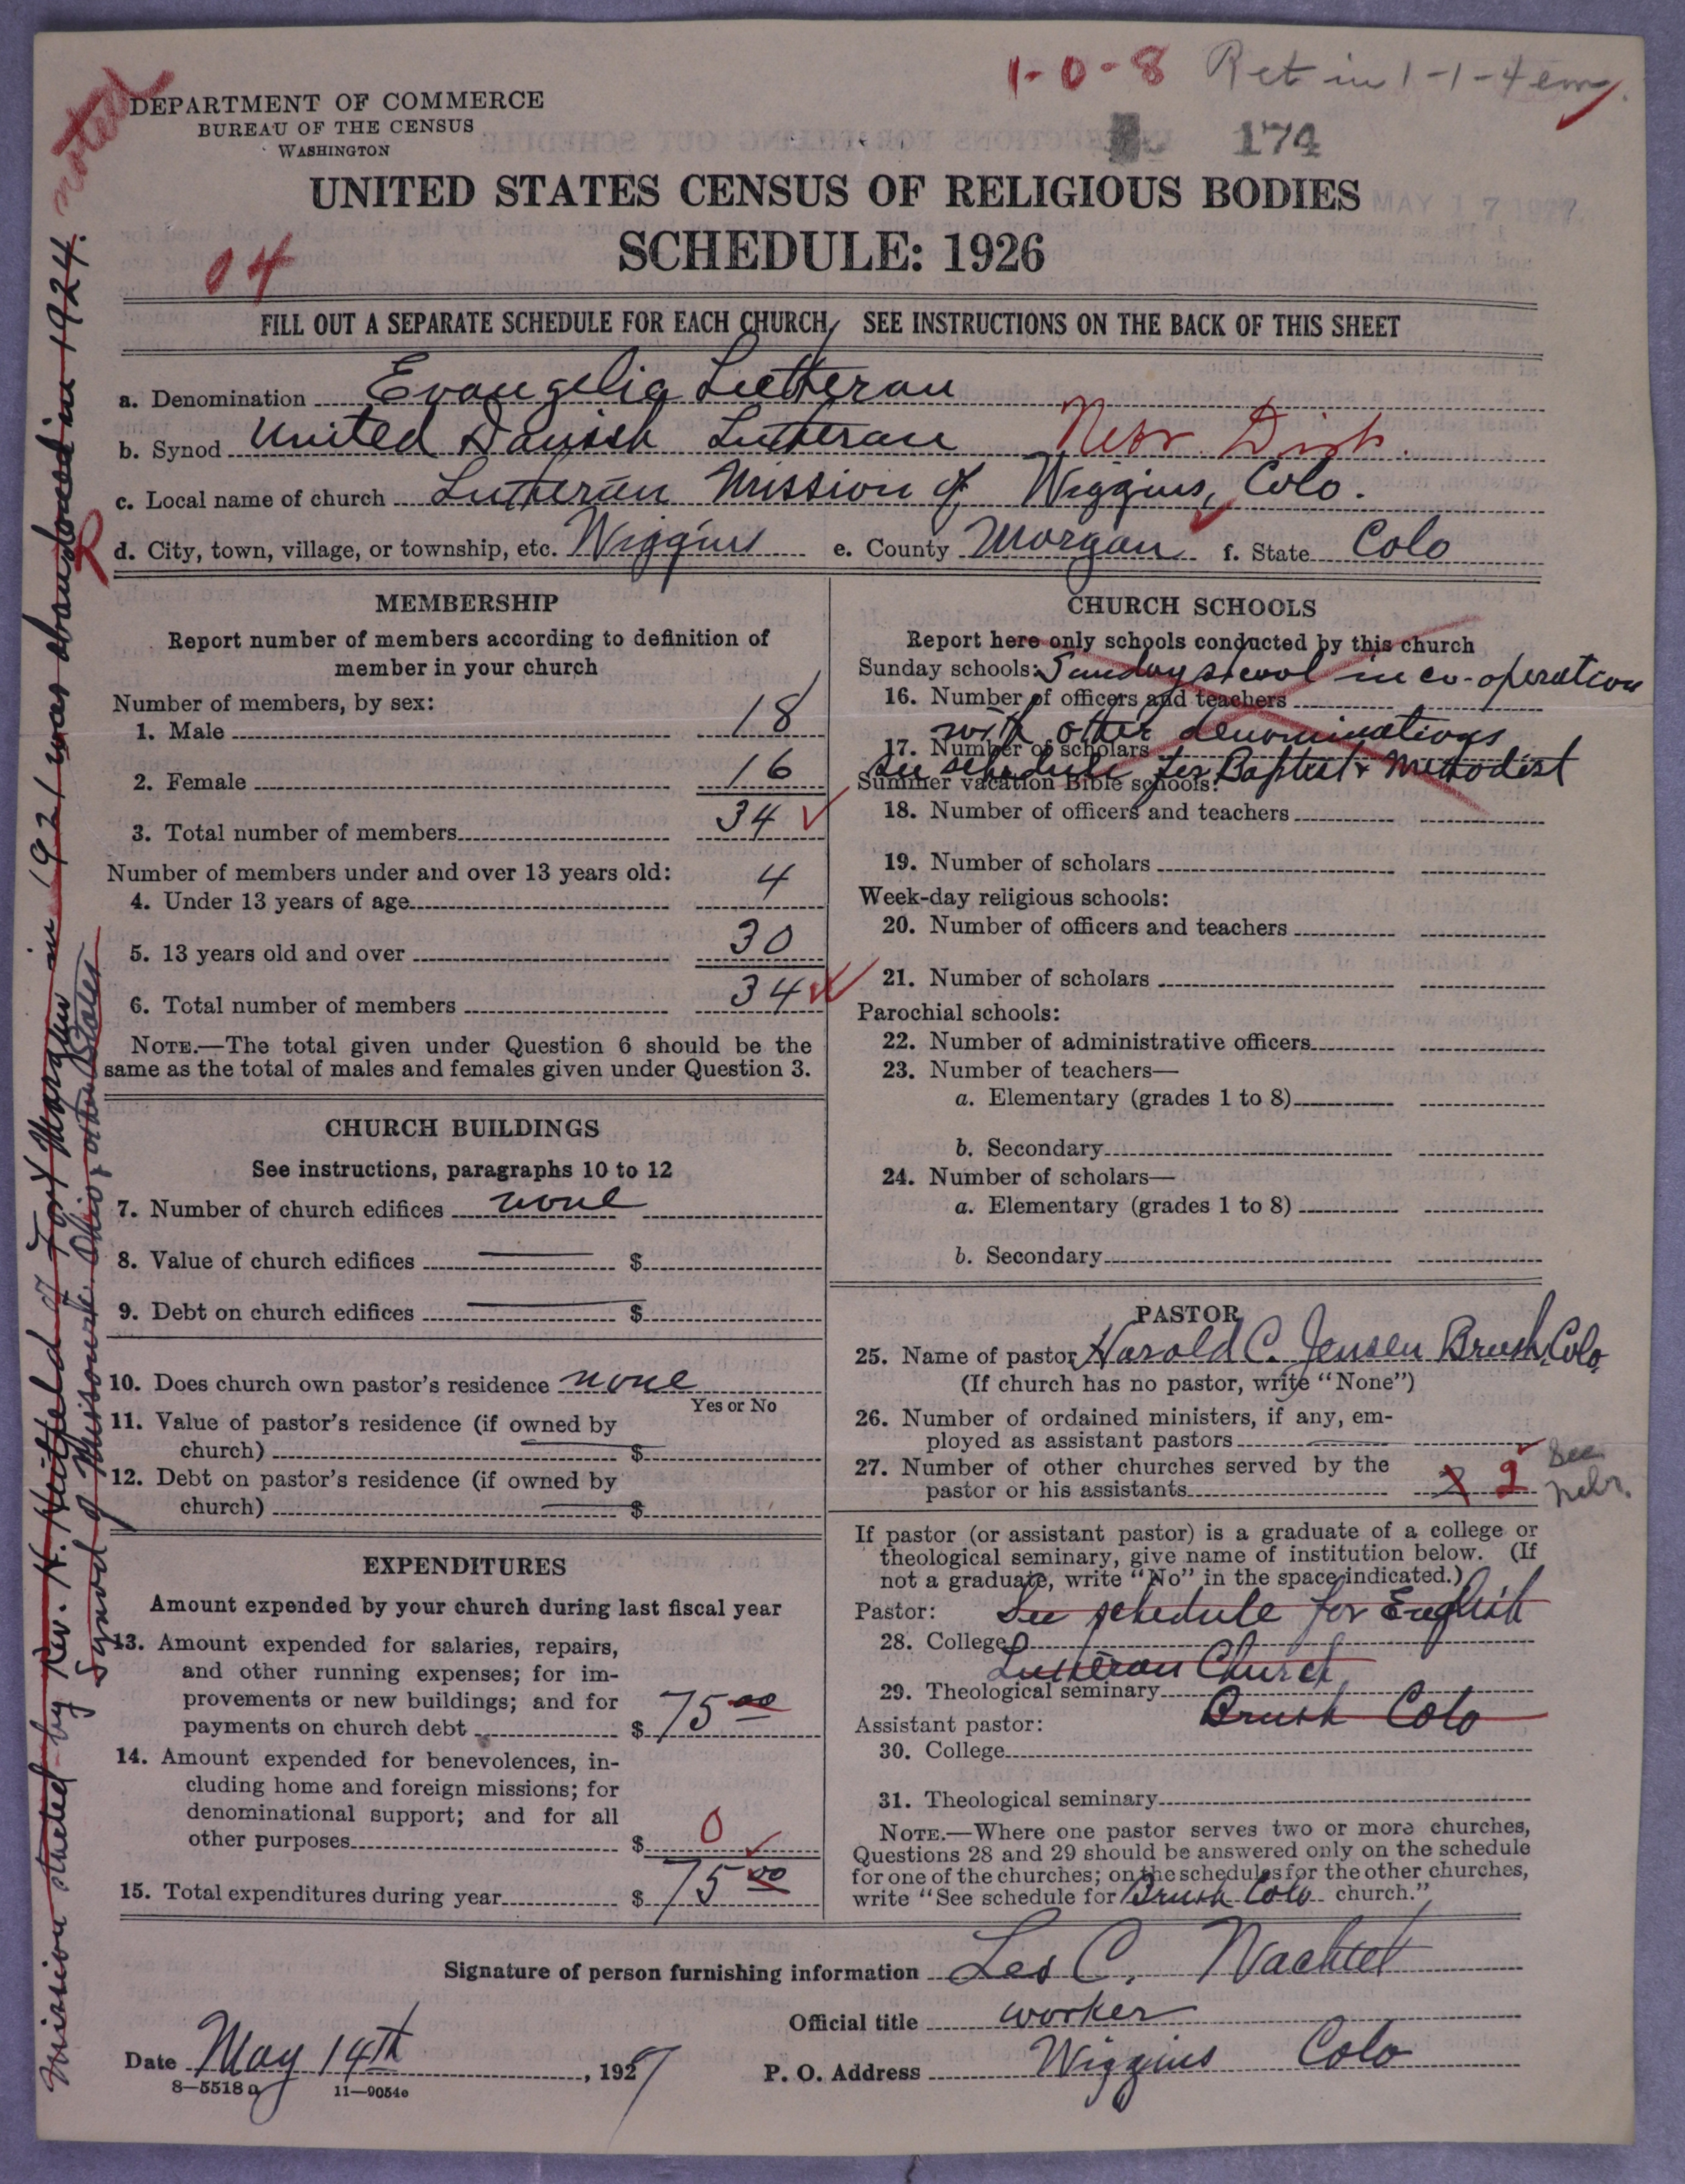 1-0-8 Ret in 1-1-4 em
noted
DEPARTMENT OF COMMERCE
BUREAU OF THE CENSUS
WASHINGTON
174
MAY 17 1927
UNITED STATES CENSUS OF RELIGIOUS BODIES
SCHEDULE: 1926
04
FILL OUT A SEPARATE SCHEDULE FOR EACH CHURCH, SEE INSTRUCTIONS ON THE BACK OF THIS SHEET
a. Denomination Evangelic Lutheran
b. Synod United Danish Lutheran Nebr. Dist.
c. Local name of church Lutheran Mission of Wiggins, Colo.
R
d. City, town, village, or township, etc. Wiggins e. County Morgan f. State Colo
MEMBERSHIP
Report number of members according to definition of
member in your church
Number of members, by sex:
1. Male 18
2. Female 16
3. Total number of members 34
Number of members under and over 13 years old:
4. Under 13 years of age 4
5. 13 years old and over 30
6. Total number of members 34
NOTE.—The total given under Question 6 should be the
same as the total of males and females given under Question 3.
CHURCH BUILDINGS
See instructions, paragraphs 10 to 12
7. Number of church edifices none
8. Value of church edifices $
9. Debt on church edifices $
10. Does church own pastor's residence none
Yes or No
11. Value of pastor's residence (if owned by
church) $
12. Debt on pastor's residence (if owned by
church) $
EXPENDITURES
Amount expended by your church during last fiscal year
13. Amount expended for salaries, repairs,
and other running expenses; for im-
provements or new buildings; and for
payments on church debt $ 75 00
14. Amount expended for benevolences, in-
cluding home and foreign missions; for
denominational support; and for all
other purposes $ 0
15. Total expenditures during year $ 75 00
CHURCH SCHOOLS
Report here only schools conducted by this church
Sunday schools: Sunday school in co-operation
16. Number of officers and teachers
with other denominations
17. Number of scholars
See schedule for Baptist & Methodist
Summer vacation Bible schools:
18. Number of officers and teachers
19. Number of scholars
Week-day religious schools:
20. Number of officers and teachers
21. Number of scholars
Parochial schools:
22. Number of administrative officers
23. Number of teachers—
a. Elementary (grades 1 to 8)
b. Secondary
24. Number of scholars—
a. Elementary (grades 1 to 8)
b. Secondary
PASTOR
25. Name of pastor Harold C. Jensen Brush, Colo.
(If church has no pastor, write "None")
26. Number of ordained ministers, if any, em-
ployed as assistant pastors
27. Number of other churches served by the
pastor or his assistants 2
See
Nebr.
If pastor (or assistant pastor) is a graduate of a college or
theological seminary, give name of institution below. (If
not a graduate, write "No" in the space indicated.)
Pastor: See schedule for English
28. College
Lutheran Church
29. Theological seminary
Brush Colo
Assistant pastor:
30. College
31. Theological seminary
NOTE.—Where one pastor serves two or more churches,
Questions 28 and 29 should be answered only on the schedule
for one of the churches; on the schedules for the other churches,
write "See schedule for Brush Colo church."
Signature of person furnishing information Leo C. Wachtel
Official title worker
Date May 14th, 1927 P. O. Address Wiggins Colo
8—5518 a 11—9054e
Mission started by Rev. H. of Fort Morgan in 1921 was abandoned in 1924.
Synod of Missouri, Ohio, other States